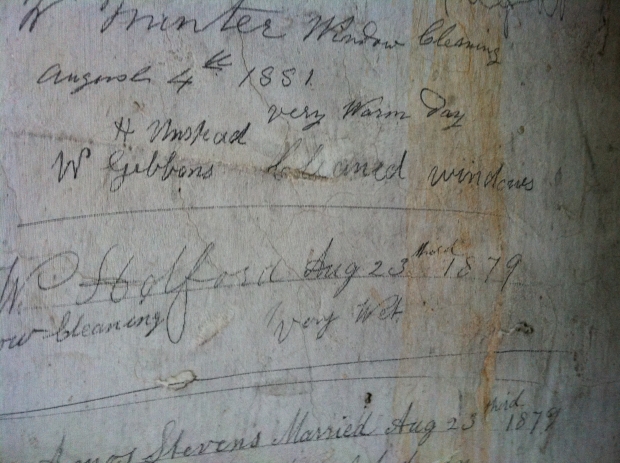 W Winter Window Cleaning
August 4th 1881
very Warm Day
H Unstead
W Gibbons Cleaned windows
W. Stolford Aug 23third 1879
ow Cleaning very Wet
Amos Stevens Married Aug 23third 1879